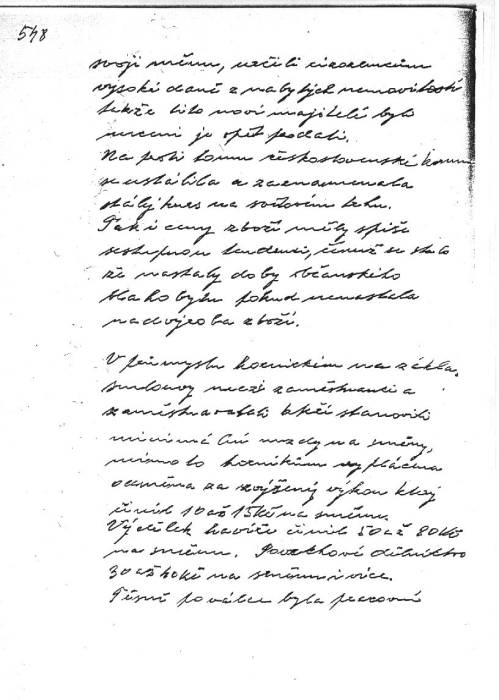 548
svoji měnu, určili cizozemcům
vysoké daně z nabytých nemovitostí
takže tito noví majitelé byli
nuceni je opět podati.
Na proti tomu československá koruna
se ustálila a zaznamenala
stálý kurs na světovém trhu.
Tak i ceny zboží měly spíše
sestupnou tendenci, čímž se stalo
že nastaly doby občanského
blahobytu pokud nenastala
nadvýroba zboží.
V průmyslu hornickém na zákla.
smlouvy mezi zaměstnanci a
zaměstnavateli kteří stanovili
minimální mzdy na směny,
mimo to horníkům vyplácena
odměna za zvýšený výkon který
činil 10 až 15 kč na směnu.
Výdělek havíře činil 50 až 80 Kč
na směnu. Povrchové dělnictvo
30 až 40 kč na směnu i více.
Těsně po válce byla pracovní